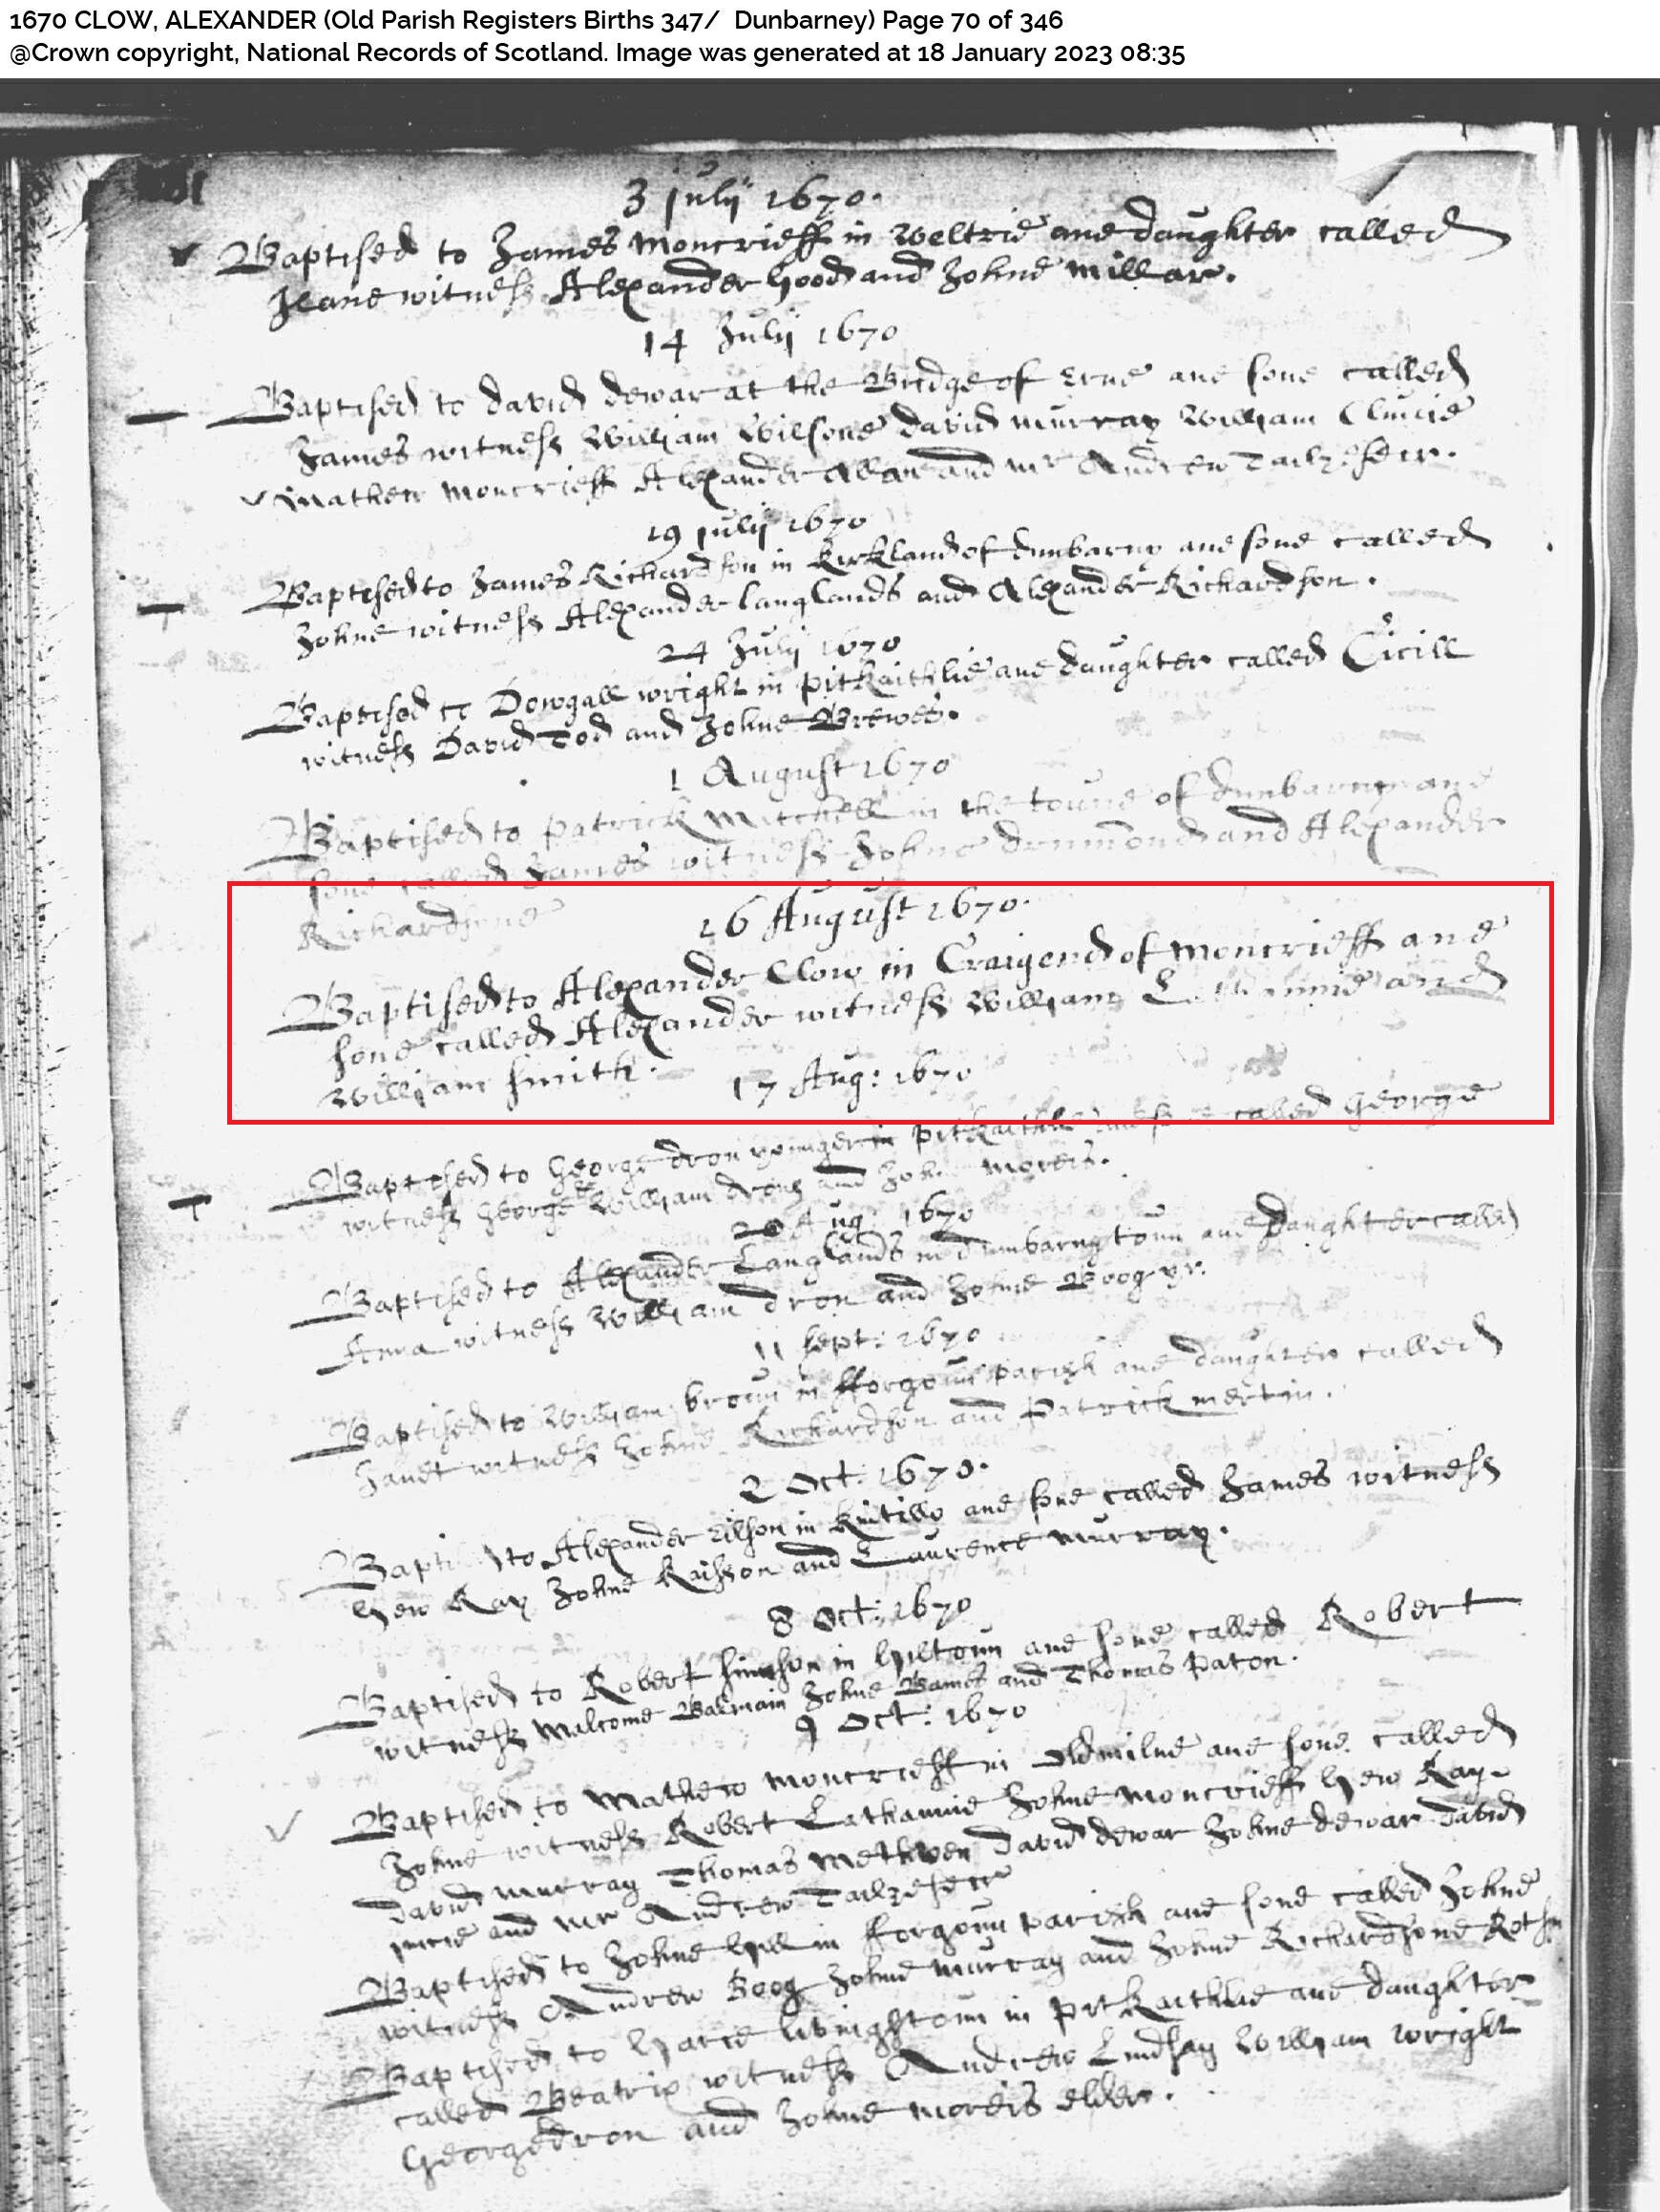 1670 CLOW, ALEXANDER (Old Parish Registers Births 347/ Dunbarney) Page 70 of 346
@Crown copyright, National Records of Scotland. Image was generated at 18 January 2023 08:35
3 julij 1670.
Baptised to James Moncrieff in Weltrie ane daughter called
Jeane witness Alexander hood and Johne Millar.
14 Julij 1670
Baptised to david dewar at the Bridge of Erne ane sone called
James witness William Wilsone david murray William Clunie
Mathew Moncrieff Alexander Allan and mr Andrew Tailzefeir.
19 julij 1670
Baptised to James Richardson in kirkland of dunbarny ane sone called
Johne witness Alexander langlands and Alexander Richardson.
24 Julij 1670
Baptised to Dowgall wright in pitkaithlie ane daughter called Cicill
witness David Tod and Johne Brewes.
1 August 1670
Baptised to patrick Mitchell in the toune of dunbarny ane
sone called James witness Johne drummond and Alexander
Richardsone
16 August 1670.
Baptised to Alexander Clow in Craigend of moncrieff ane
sone called Alexander witness William and
William smith.
17 Aug: 1670
Baptised to George dron younger in pitkaithlie called George
witness George William dron and John moreis.
Aug: 1670
Baptised to Alexander Langlands in dunbarny toun ane daughter called
Anna witness William dron and Johne Boog yr.
11 sept: 1670
Baptised to William broun in fforgoun parish ane daughter called
Janet witness Johne Richardson and Patrick mertin.
2 Oct: 1670.
Baptised to Alexander in Kintillo ane sone called James witness
hew Kay Johne and Laurence murray.
8 Oct: 1670
Baptised to Robert simson in hiltoun ane sone called Robert
witness Malcome Balmain Johne and Thomas paton.
9 Oct: 1670
Baptised to Mathew moncrieff in oldmilne ane sone called
Johne witness Robert Lathannie Johne Moncrieff hew Kay
david murray Thomas Methven david dewar Johne dewar David
and mr Andrew Tailzefeir
Baptised to Johne hill in forgoun parish ane sone called Johne
witness Andrew Boog Johne murray and Johne Richardsone
Baptised to livingstoun in pitkaithlie ane daughter
called Beatrix witness Andrew Lindsay William wright
George dron and Johne moreis elder.